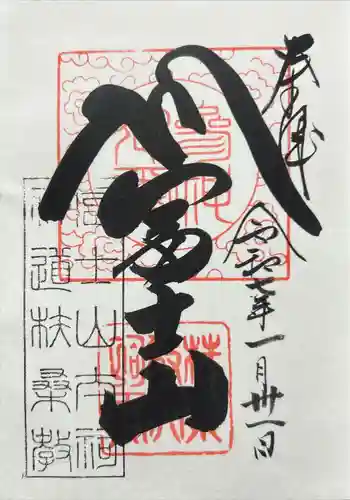 奉拝
富士山
令和七年一月卅一日
富士山本祠
神道扶桑教